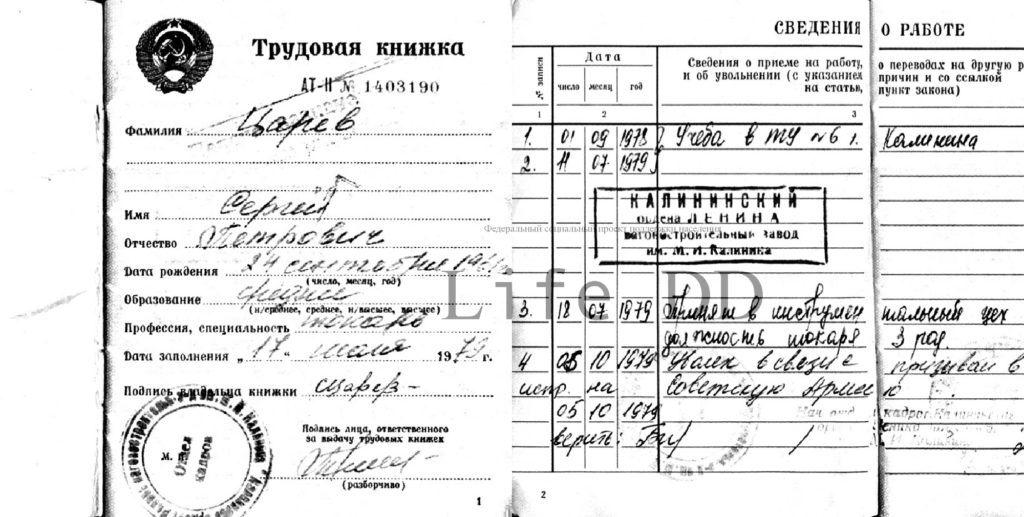 Трудовая книжка
АТ-II № 1403190
Фамилия Царев
Имя Сергей
Отчество Петрович
Дата рождения 24 сентября
(число, месяц, год)
Образование среднее
(н/среднее, среднее, н/высшее, высшее)
Профессия, специальность токарь
Дата заполнения „ 17 “ июля 1979 г.
Подпись владельца книжки Царев
Подпись лица, ответственного
за выдачу трудовых книжек
(разборчиво)
М.
Отдел
кадров
1
СВЕДЕНИЯ О РАБОТЕ
№ записи
Дата
число месяц год
Сведения о приеме на работу, о переводах на другую р
и об увольнении (с указанием причин и со ссылкой
на статью, пункт закона)
1 2 3
1. 01 09 1978 Учеба в ТУ №6 г. Калинина
2. 11 07 1979
КАЛИНИНСКИЙ
ордена ЛЕНИНА
вагоностроительный завод
им. М. И. Калинина
Федеральный социальный проект поддержки населения
Life DD
3. 18 07 1979 Принят в инструментальный цех
должность токаря 3 раз.
4 05 10 1979 Уволен в связи с призывом в
испр. на Советскую Армию
05 10 1979
верить:
2